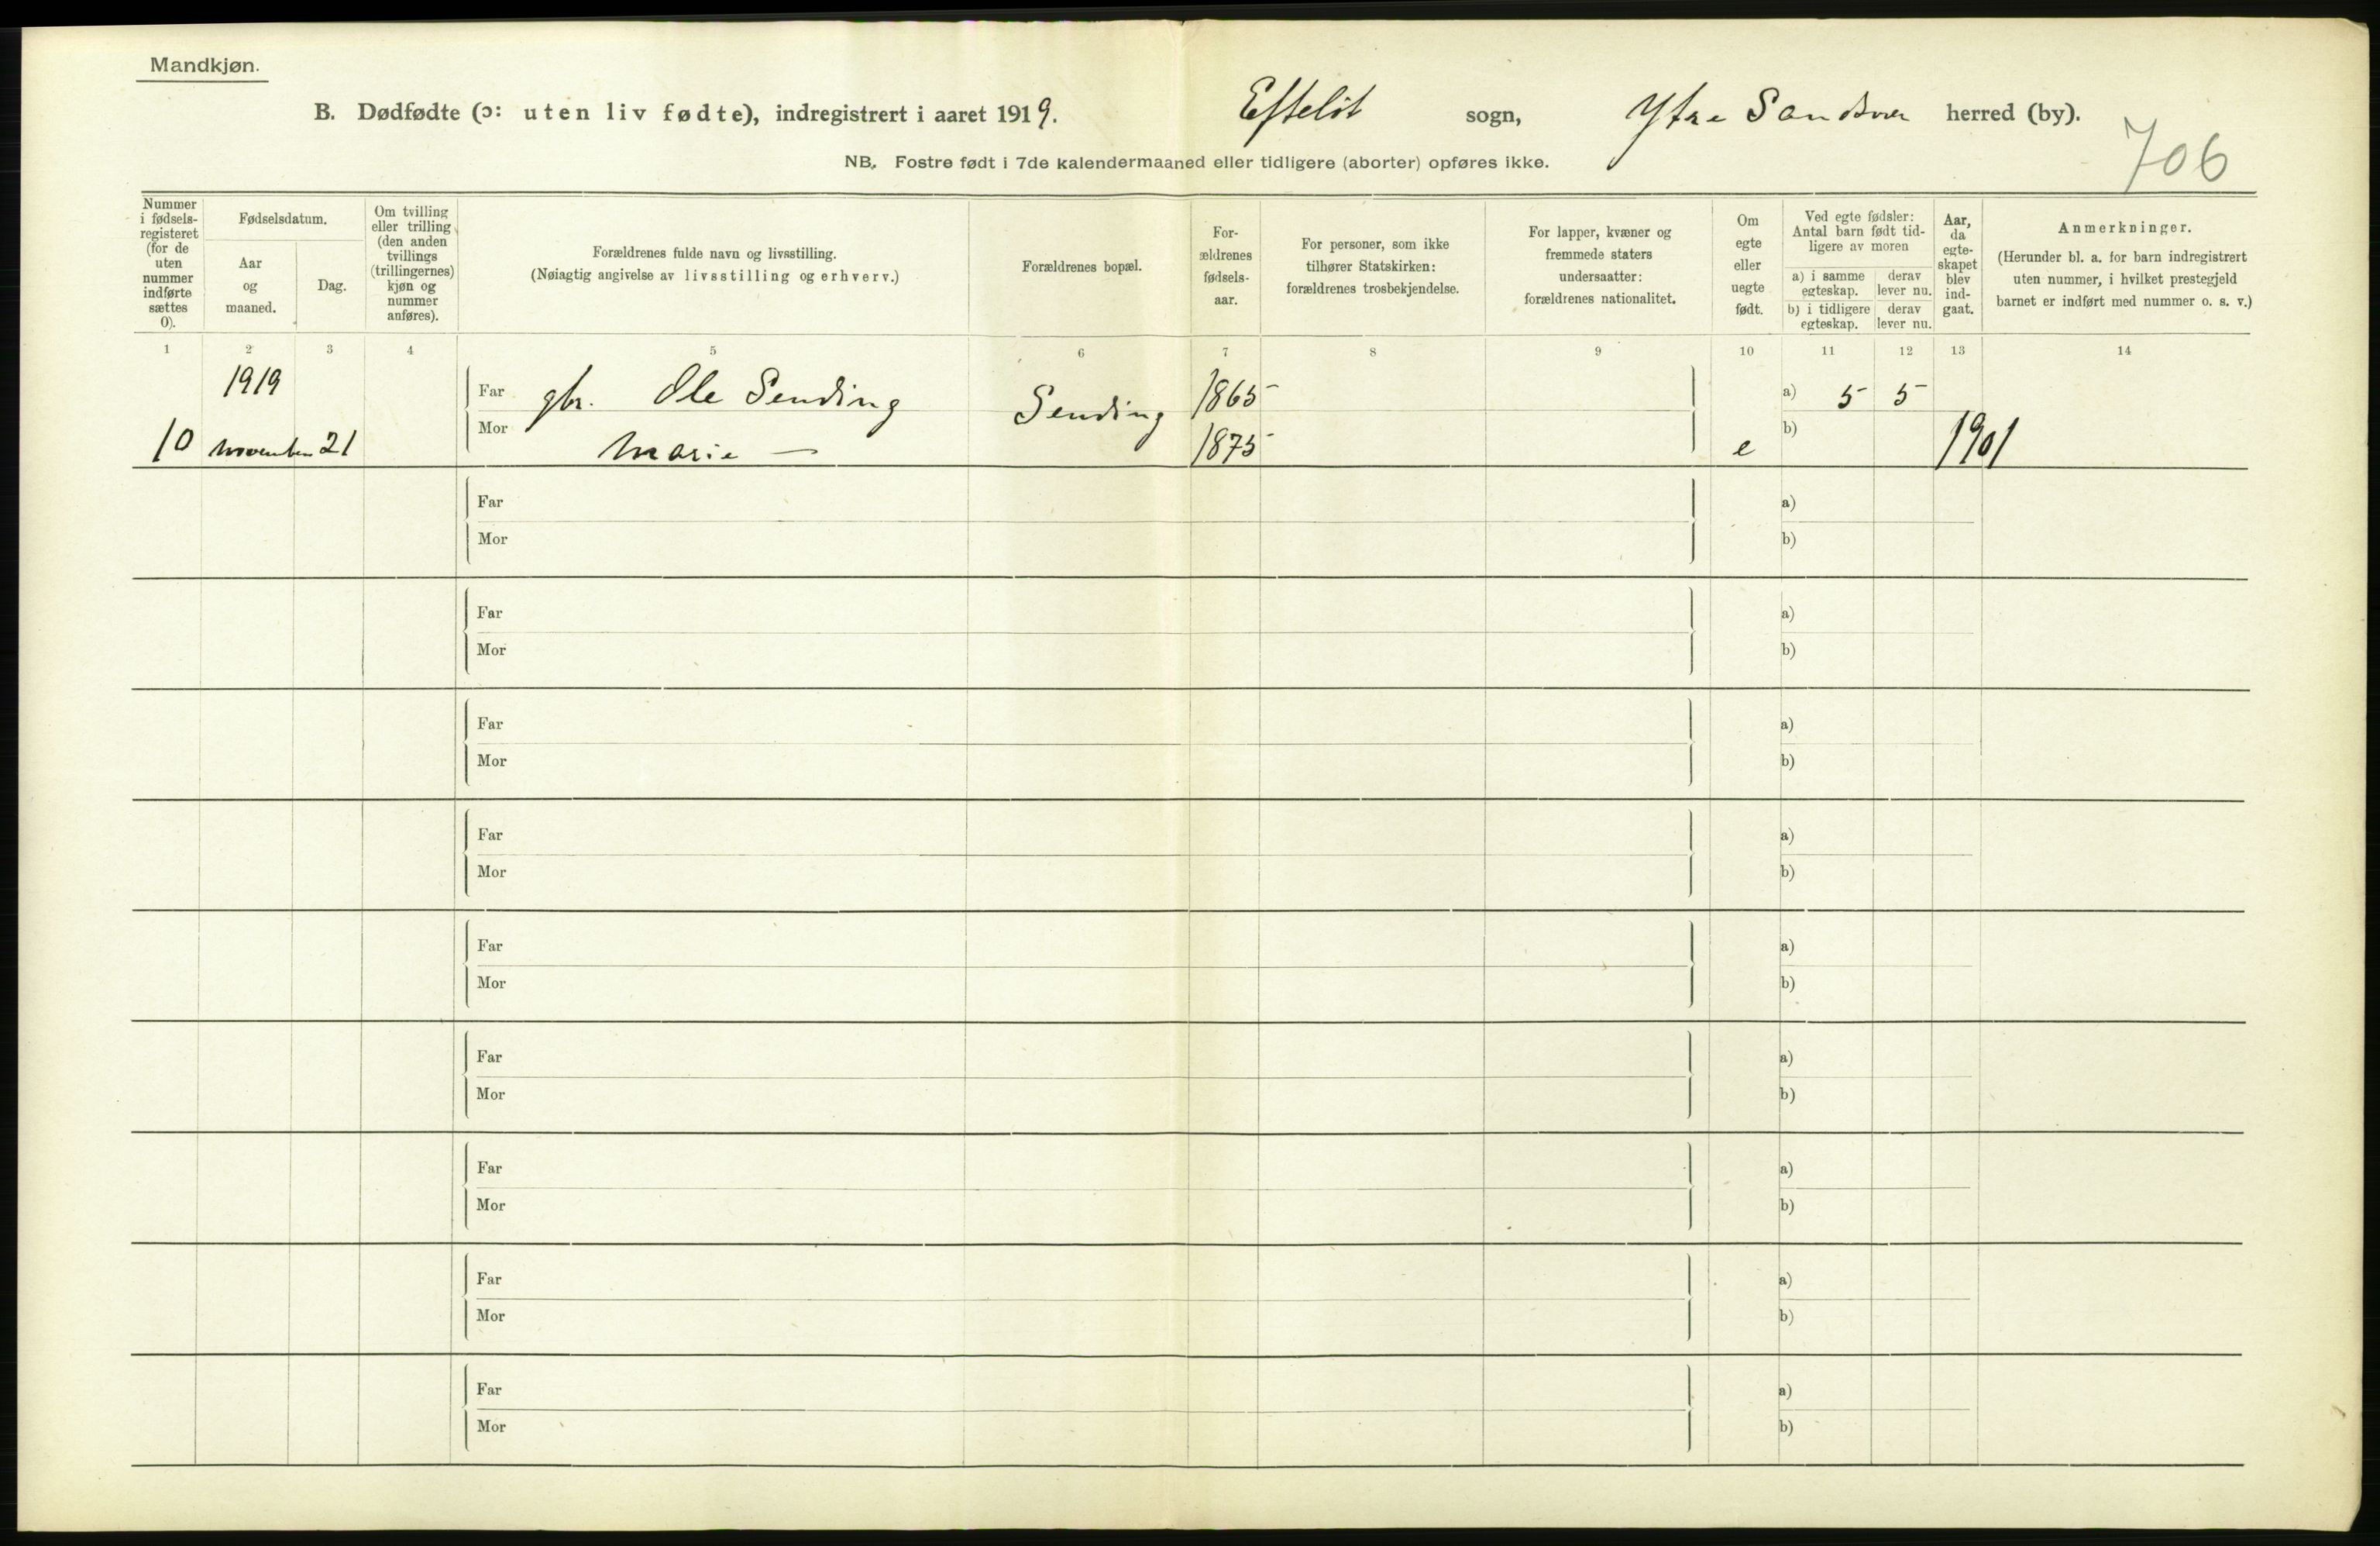 Mandkjøn.
B. Dødfødte (ɔ: uten liv fødte), indregistrert i aaret 1919. Efteløt sogn, Ytre Sandsvær herred (by).
706
NB. Fostre født i 7de kalendermaaned eller tidligere (aborter) opføres ikke.
Nummer i fødsels-registeret (for de uten nummer indførte sættes 0).
Fødselsdatum.
Aar og maaned.
Dag.
Om tvilling eller trilling (den anden tvillings (trillingernes) kjøn og nummer anføres).
Forældrenes fulde navn og livsstilling.
(Nøiagtig angivelse av livsstilling og erhverv.)
Forældrenes bopæl.
For-ældrenes fødsels-aar.
For personer, som ikke tilhører Statskirken: forældrenes trosbekjendelse.
For lapper, kvæner og fremmede staters undersaatter: forældrenes nationalitet.
Om egte eller uegte født.
Ved egte fødsler: Antal barn født tid-ligere av moren
a) i samme egteskap.
derav lever nu.
b) i tidligere egteskap.
derav lever nu.
Aar, da egte-skapet blev ind-gaat.
Anmerkninger.
(Herunder bl. a. for barn indregistrert uten nummer, i hvilket prestegjeld barnet er indført med nummer o. s. v.)
1 2 3 4 5 6 7 8 9 10 11 12 13 14
1919 Far gbr. Ole Sending Sending 1865 a) 5 5
10 november 21 Mor Marie — 1875 e b) 1901
Far a)
Mor b)
Far a)
Mor b)
Far a)
Mor b)
Far a)
Mor b)
Far a)
Mor b)
Far a)
Mor b)
Far a)
Mor b)
Far a)
Mor b)
Far a)
Mor b)